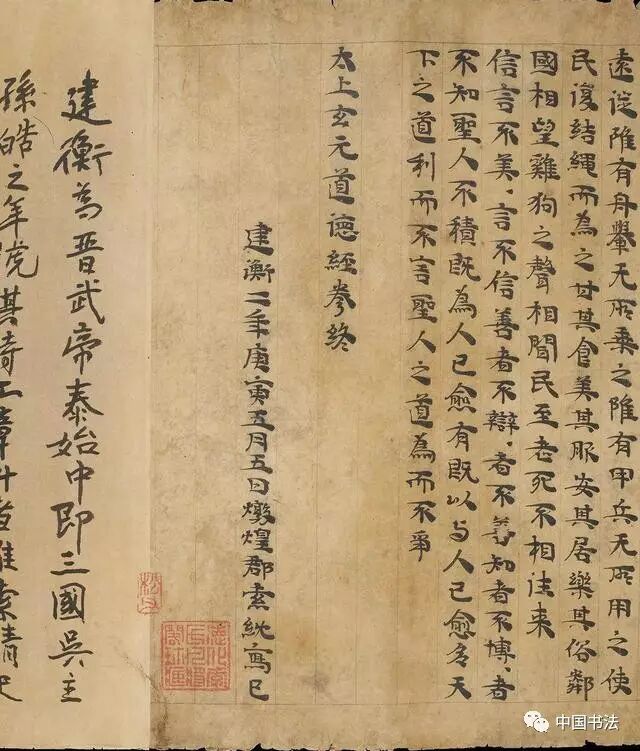 遠徙雖有舟轝无所乘之雖有甲兵无所用之使
民復結繩而為之甘其食美其服安其居樂其俗鄰
國相望雞狗之聲相聞民至老死不相往来
信言不美〻言不信善者不辯〻者不善知者不博〻者
不知聖人不積既為人已愈有既以与人已愈多天
下之道利而不害聖人之道為而不爭
太上玄元道德經卷終
建衡二年庚寅五月五日燉煌郡索紞寫已
建衡為晉武帝泰始中即三國吳主
孫皓之年號其時工章草者惟索靖
中国书法